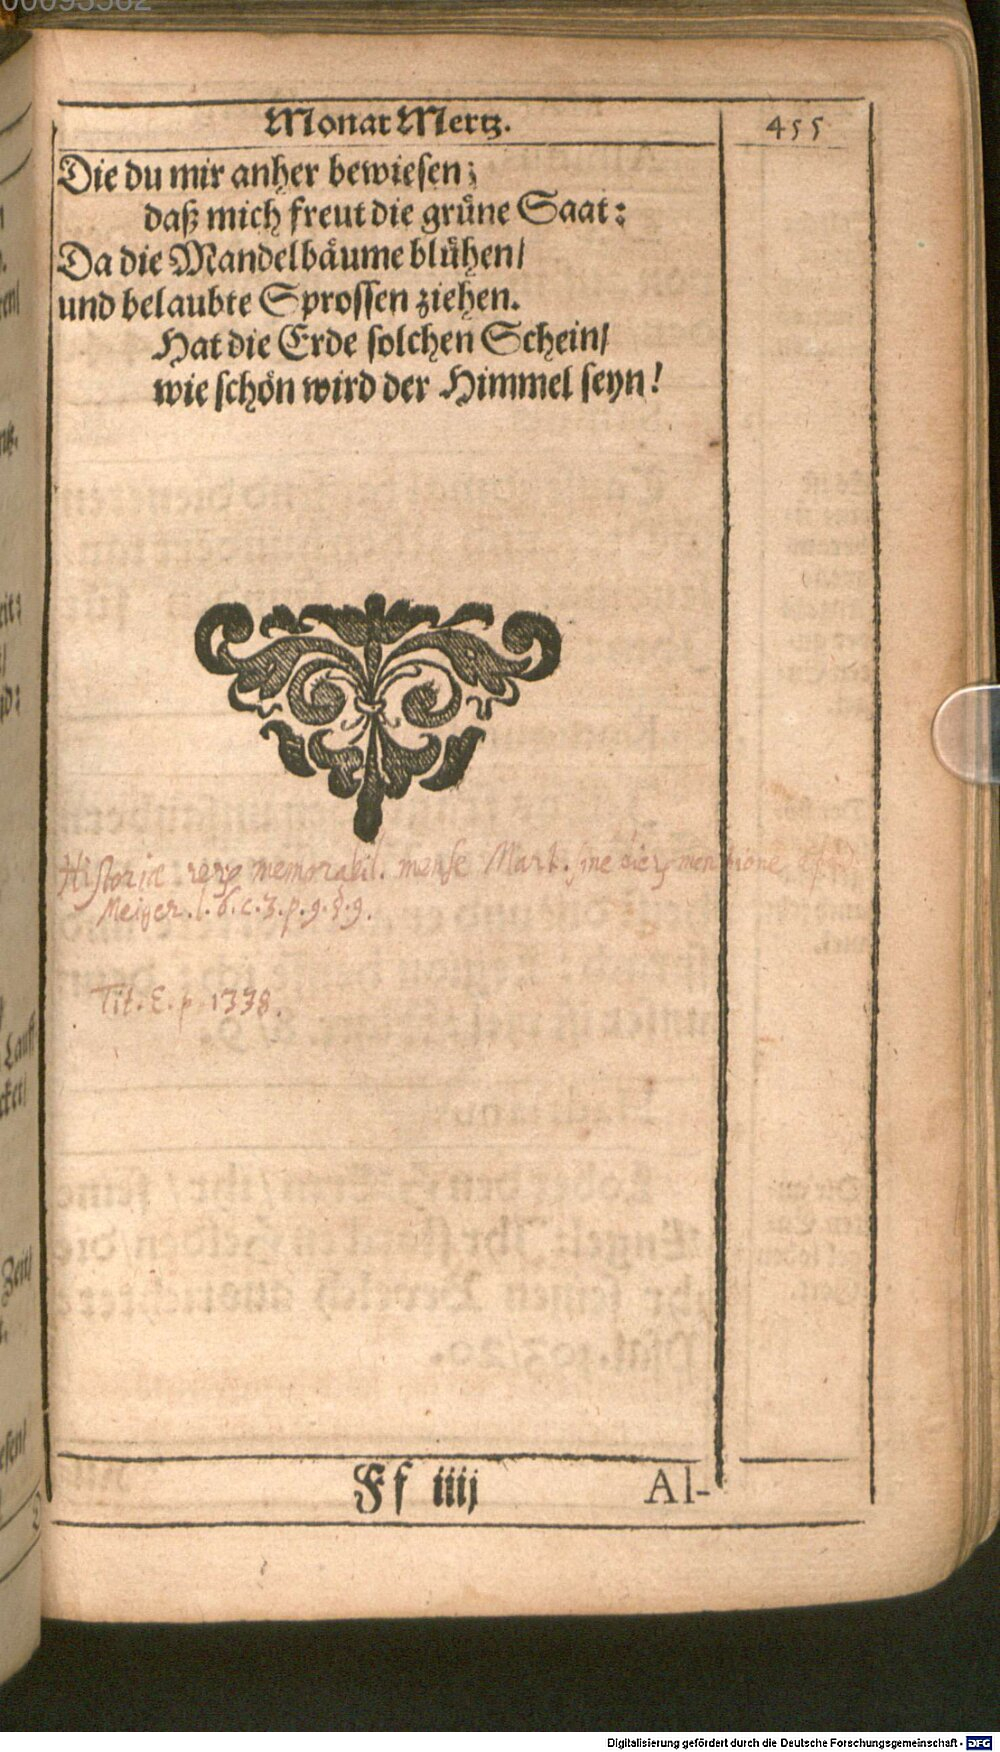 Monat Mertz.
455
Die du mir anher bewiesen;
daß mich freut die grüne Saat:
Da die Mandelbäume blühen/
und belaubte Sprossen ziehen.
Hat die Erde solchen Schein/
wie schön wird der Himmel seyn!
Historiæ memorabil. mense Mart. sine
Meiger. l. 6. c. 3. p. 9. §. 9.
Tit. E. p. 1338.
Ff iiij
Al-
Digitalisierung gefördert durch die Deutsche Forschungsgemeinschaft - DFG